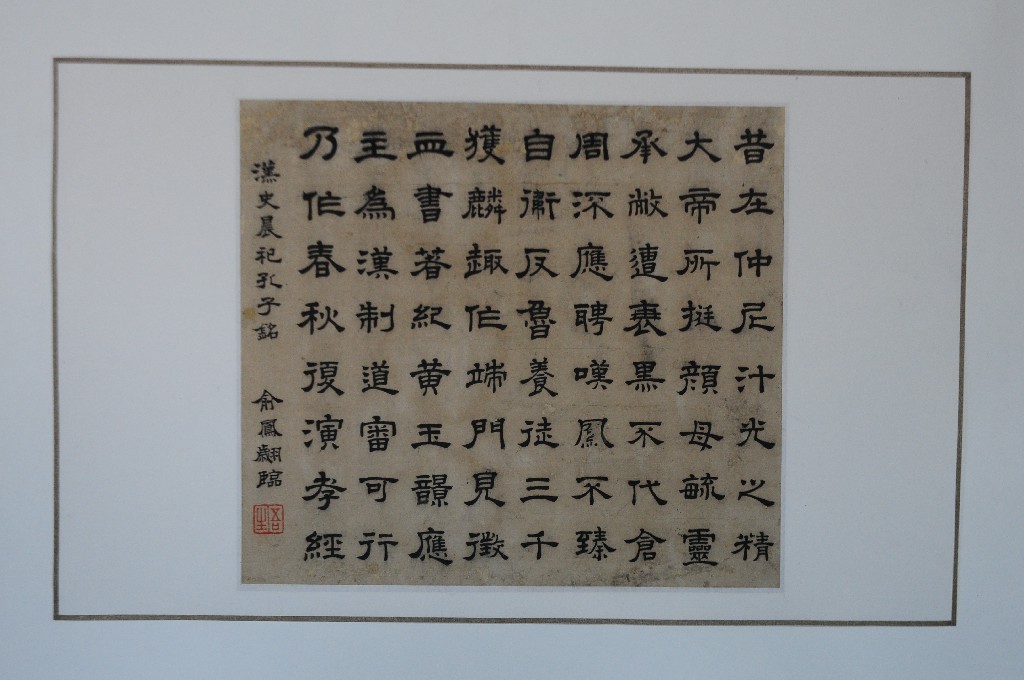 昔在仲尼汁光之精
大帝所挺顏母毓靈
承敝遭衰黑不代倉
周深應聘嘆鳳不臻
自衛反魯養徒三千
獲麟趣作端門見徵
血書著紀黃玉韻應
主為漢制道審可行
乃作春秋復演孝經
漢史晨祀孔子銘
俞鳳翽臨